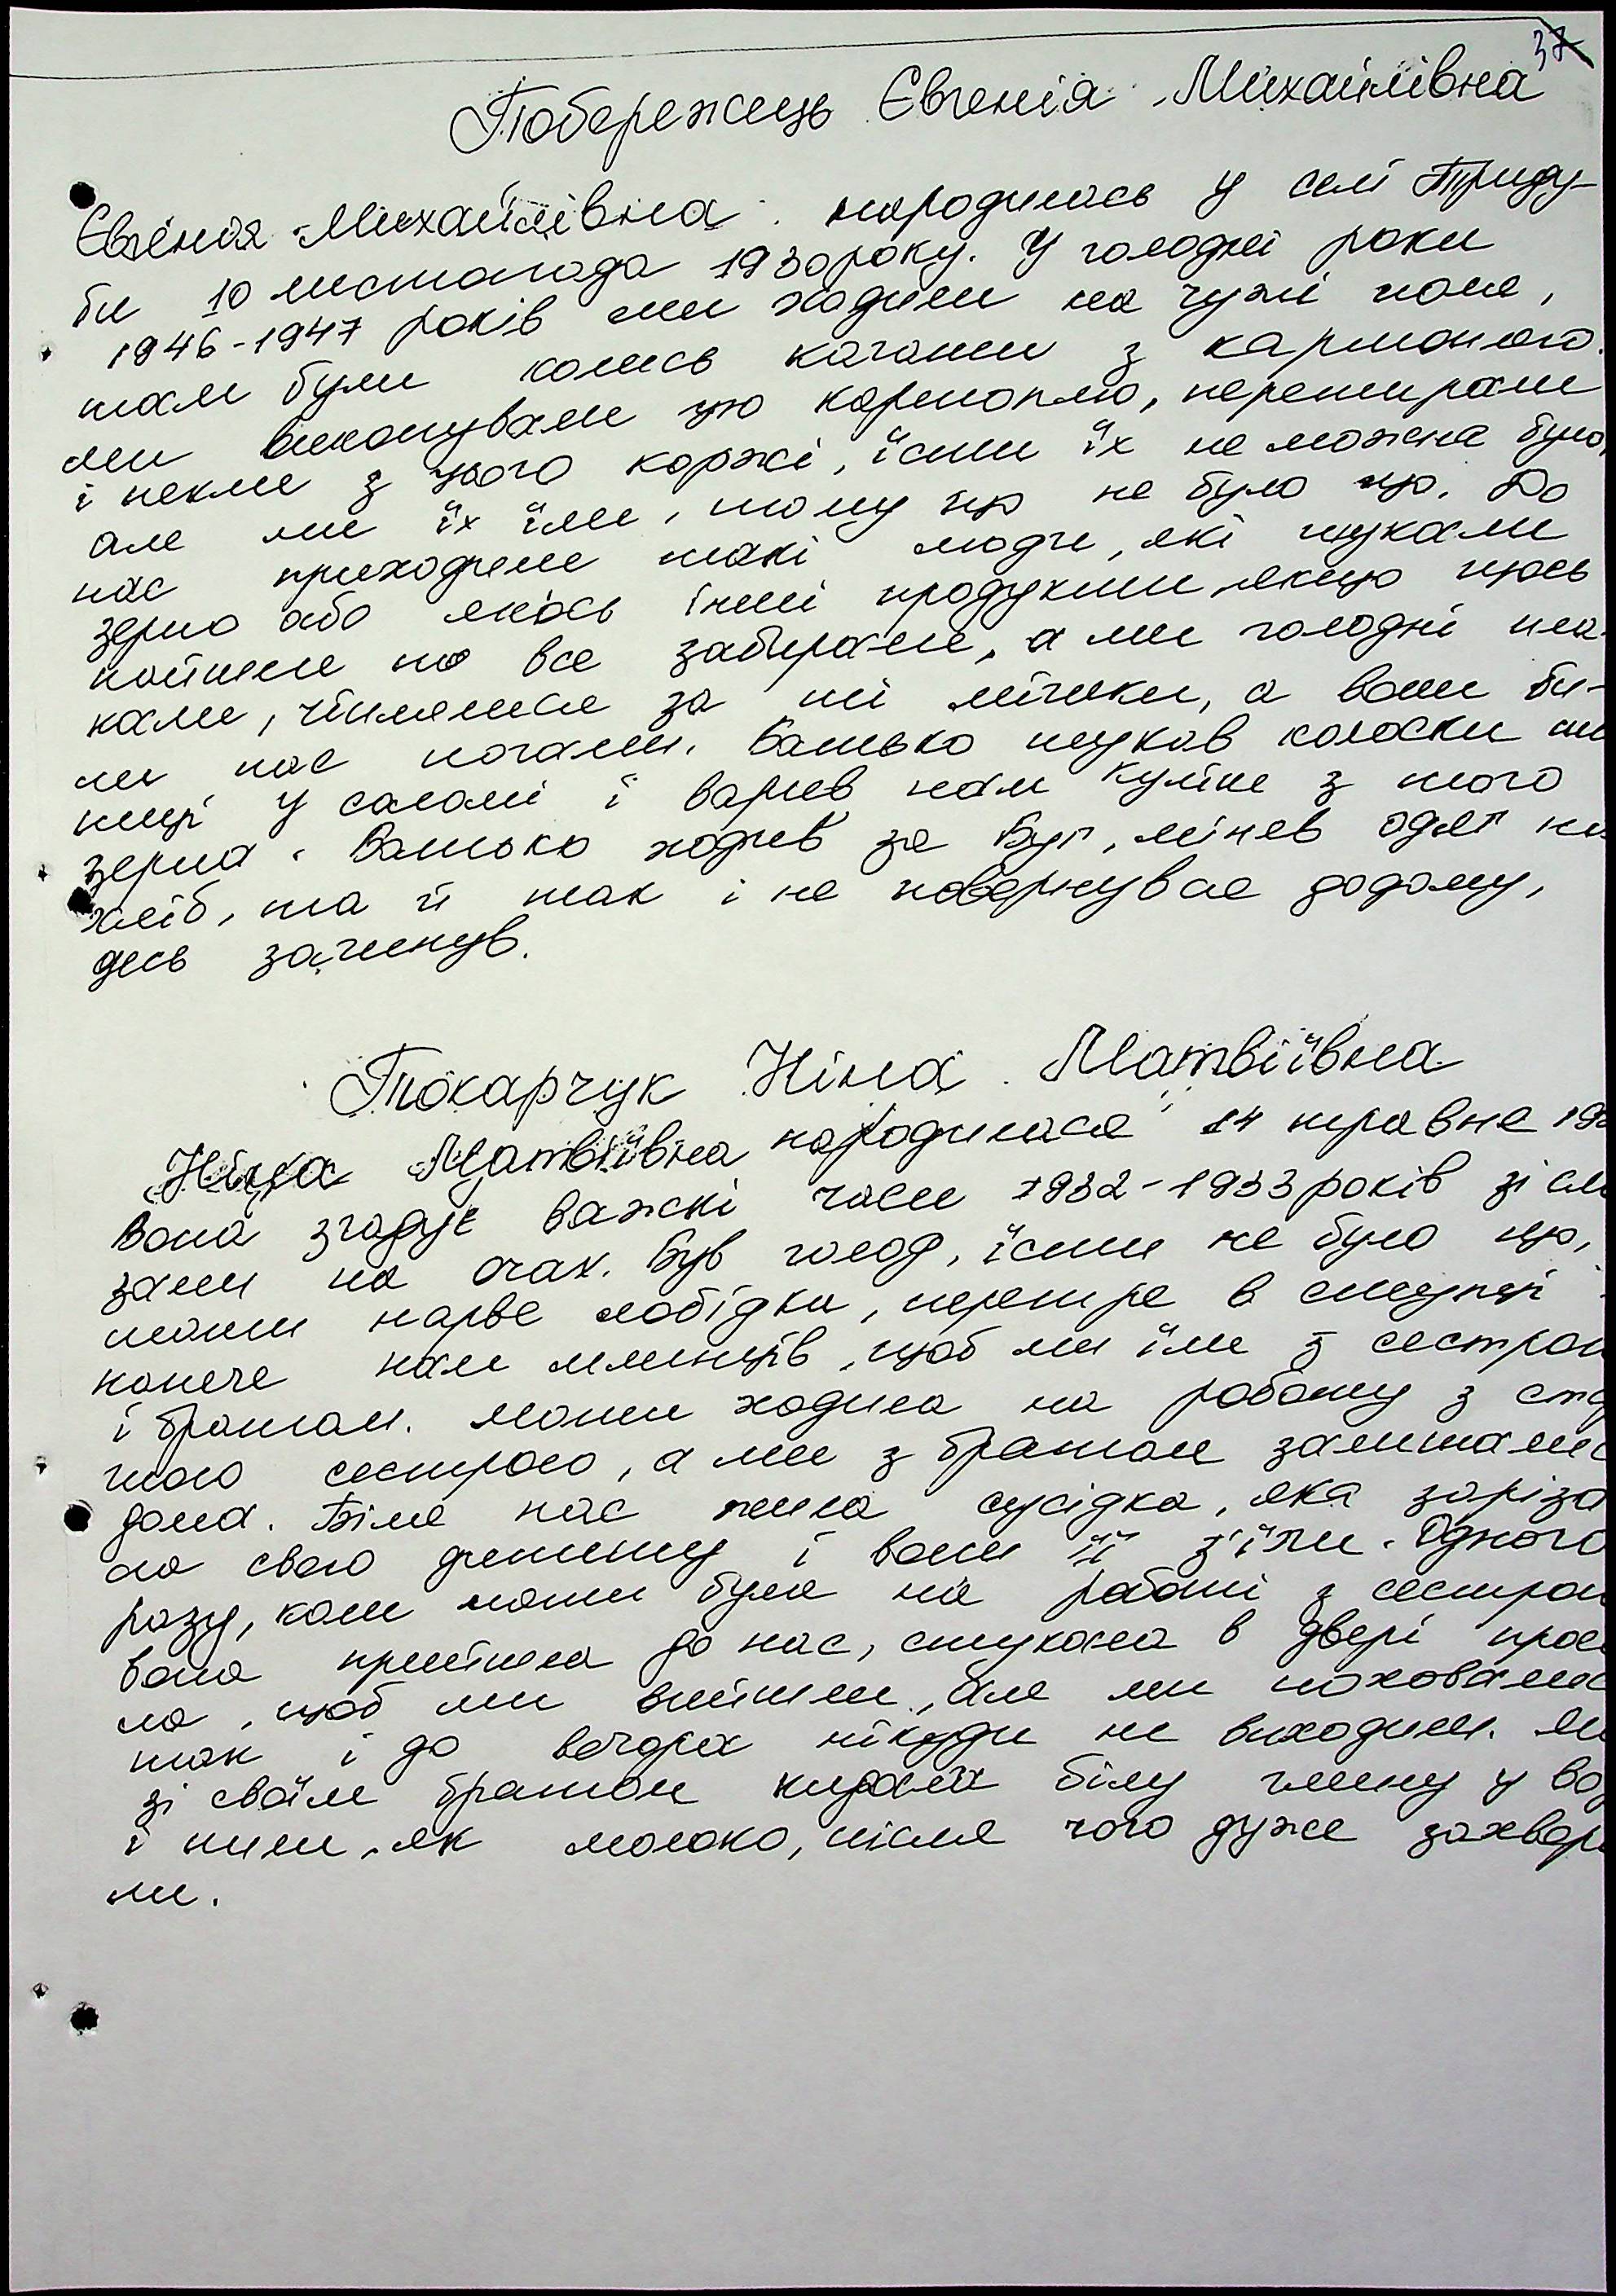 37
Побережець Євгенія Михайлівна
Євгенія Михайлівна народилась у селі Приду-
би 10 листопада 1930 року. У голодні роки
1946-1947 років ми ходили на чужі поля,
там були колись кагати з картоплею.
ми викопували цю картоплю, перетирали
і пекли з цього коржі, їсти їх не можна було,
але ми їх їли, тому що не було що. До
нас приходили такі люди, які шукали
зерно або якісь інші продукти, якщо щось
найшли то все забирали, а ми голодні пла-
кали, чіплялися за ті мішки, а вони би-
ли нас ногами. Батько шукав колоски
ниці у соломі і варив нам куліш з того
зерна. Батько ходив за Буг, міняв одяг на
хліб, та й так і не повернувся додому,
десь загинув.
Токарчук Ніна Матвіївна
Ніна Матвіївна народилася 14 травня 19
Вона згадує важкі часи 1932-1933 років зі сль
зами на очах. Був голод, їсти не було що,
мати нарве лобідки, перетре в ступці і
напече нам млинців, щоб ми їли з сестрою
і братом. Мати ходила на роботу з ста
шою сестрою, а ми з братом залишалис
дома. Біля нас жила сусідка, яка заріза
ла свою дитину і вони її з'їли. Одного
разу, коли мати була на роботі з сестрою
вона прийшла до нас, стукала в двері прос
ла, щоб ми вийшли, але ми поховалис
так і до вечора нікуди не виходили. Ми
зі своїм братом кидали білу глину у во
і пили, як молоко, після чого дуже захвор
ли.